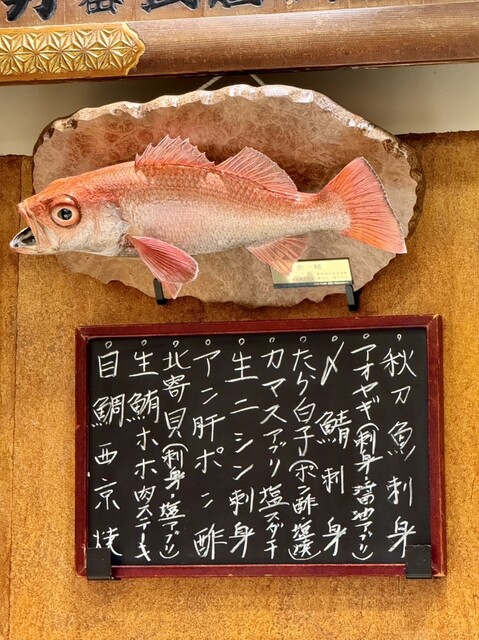 秋刀魚刺身
アオヤギ(刺身・醤油アブリ)
〆鯖刺身
たら白子(ポン酢・塩焼)
カマスアブリ塩スダチ
生ニシン刺身
アン肝ポン酢
北寄貝(刺身・塩アブリ)
生鮪ホホ肉ステーキ
目鯛西京焼